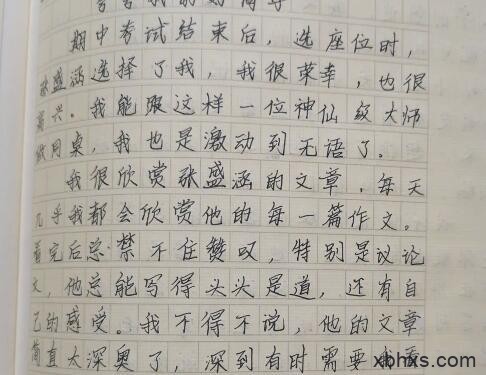 期中考试结束后，选座位时，
张盛涵选择了我，我很荣幸，也很
高兴。我能跟这样一位神仙级大师
做同桌，我也是激动到无语了。
我很欣赏张盛涵的文章，每天
几乎我都会欣赏他的每一篇作文。
看完后总禁不住赞叹，特别是议论
文，他总能写得头头是道，还有自
己的感受。我不得不说，他的文章
简直太深奥了，深到有时需要我看
xbhxs.com